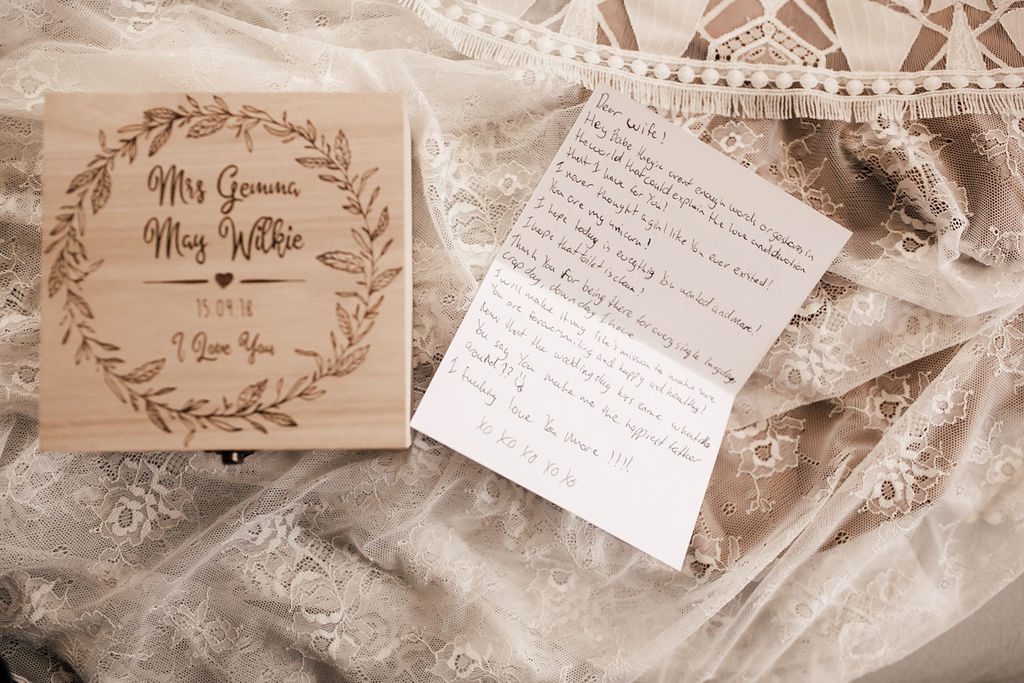 Mrs Gemma
May Wilkie
15.09.18
I Love You
Dear wife!
Hey Babe there's arent enough words or gestures in
the world that could explain the love and devotion
that I have for You!
I never thought a girl like You ever existed!
You are my unicorn!
I hope today is everything You wanted and more!
I hope that toilet is clean!
Thank You for being there for every single long day,
crap day, down day I have
I will make it my life's mission to make sure
You are forever smiling and happy and healthy!
now that the wedding day has come what do
You say You make me the happiest father
around??
I fucking love You More !!!!
xo xo xo xo xo